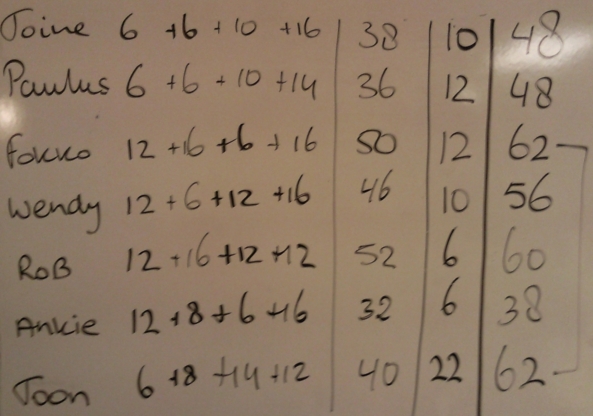 Joine 6 +6 + 10 +16 38 10 48
Paulus 6 +6 + 10 +14 36 12 48
Fokko 12 +16 +6 + 16 50 12 62
Wendy 12 + 6 +12 +16 46 10 56
RoB 12 +16 +12 +12 52 6 60
Ankie 12 +8 + 6 +6 32 6 38
Toon 6 +8 +14 +12 40 22 62